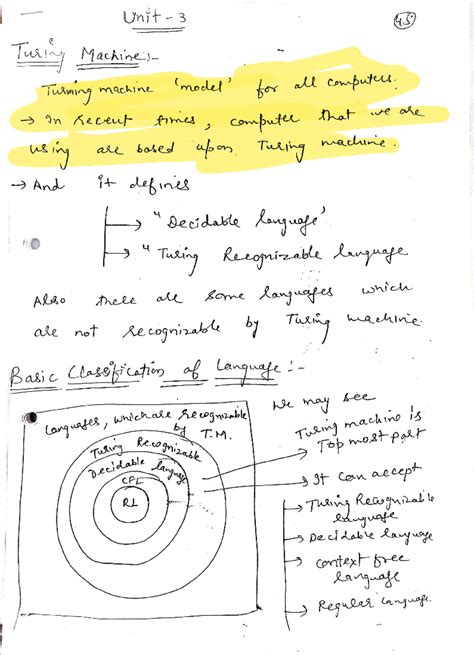 Unit - 3
45
Turing Machine :-
Turning machine 'model' for all computers.
→ In recent times, computer that we are
using are based upon Turing machine.
→ And it defines
→ "Decidable language'
→ "Turing Recognizable language
Also there are some languages which
are not recognizable by Turing machine.
Basic Classification of Language :-
Languages, which are recognizable
by T.M.
Turing Recognizable
Decidable language
CFL
RL
We may see
Turing machine is
Top most part
→ It can accept
→ Turing Recognizable
language
→ Decidable language
→ context free
language
→ Regular language.